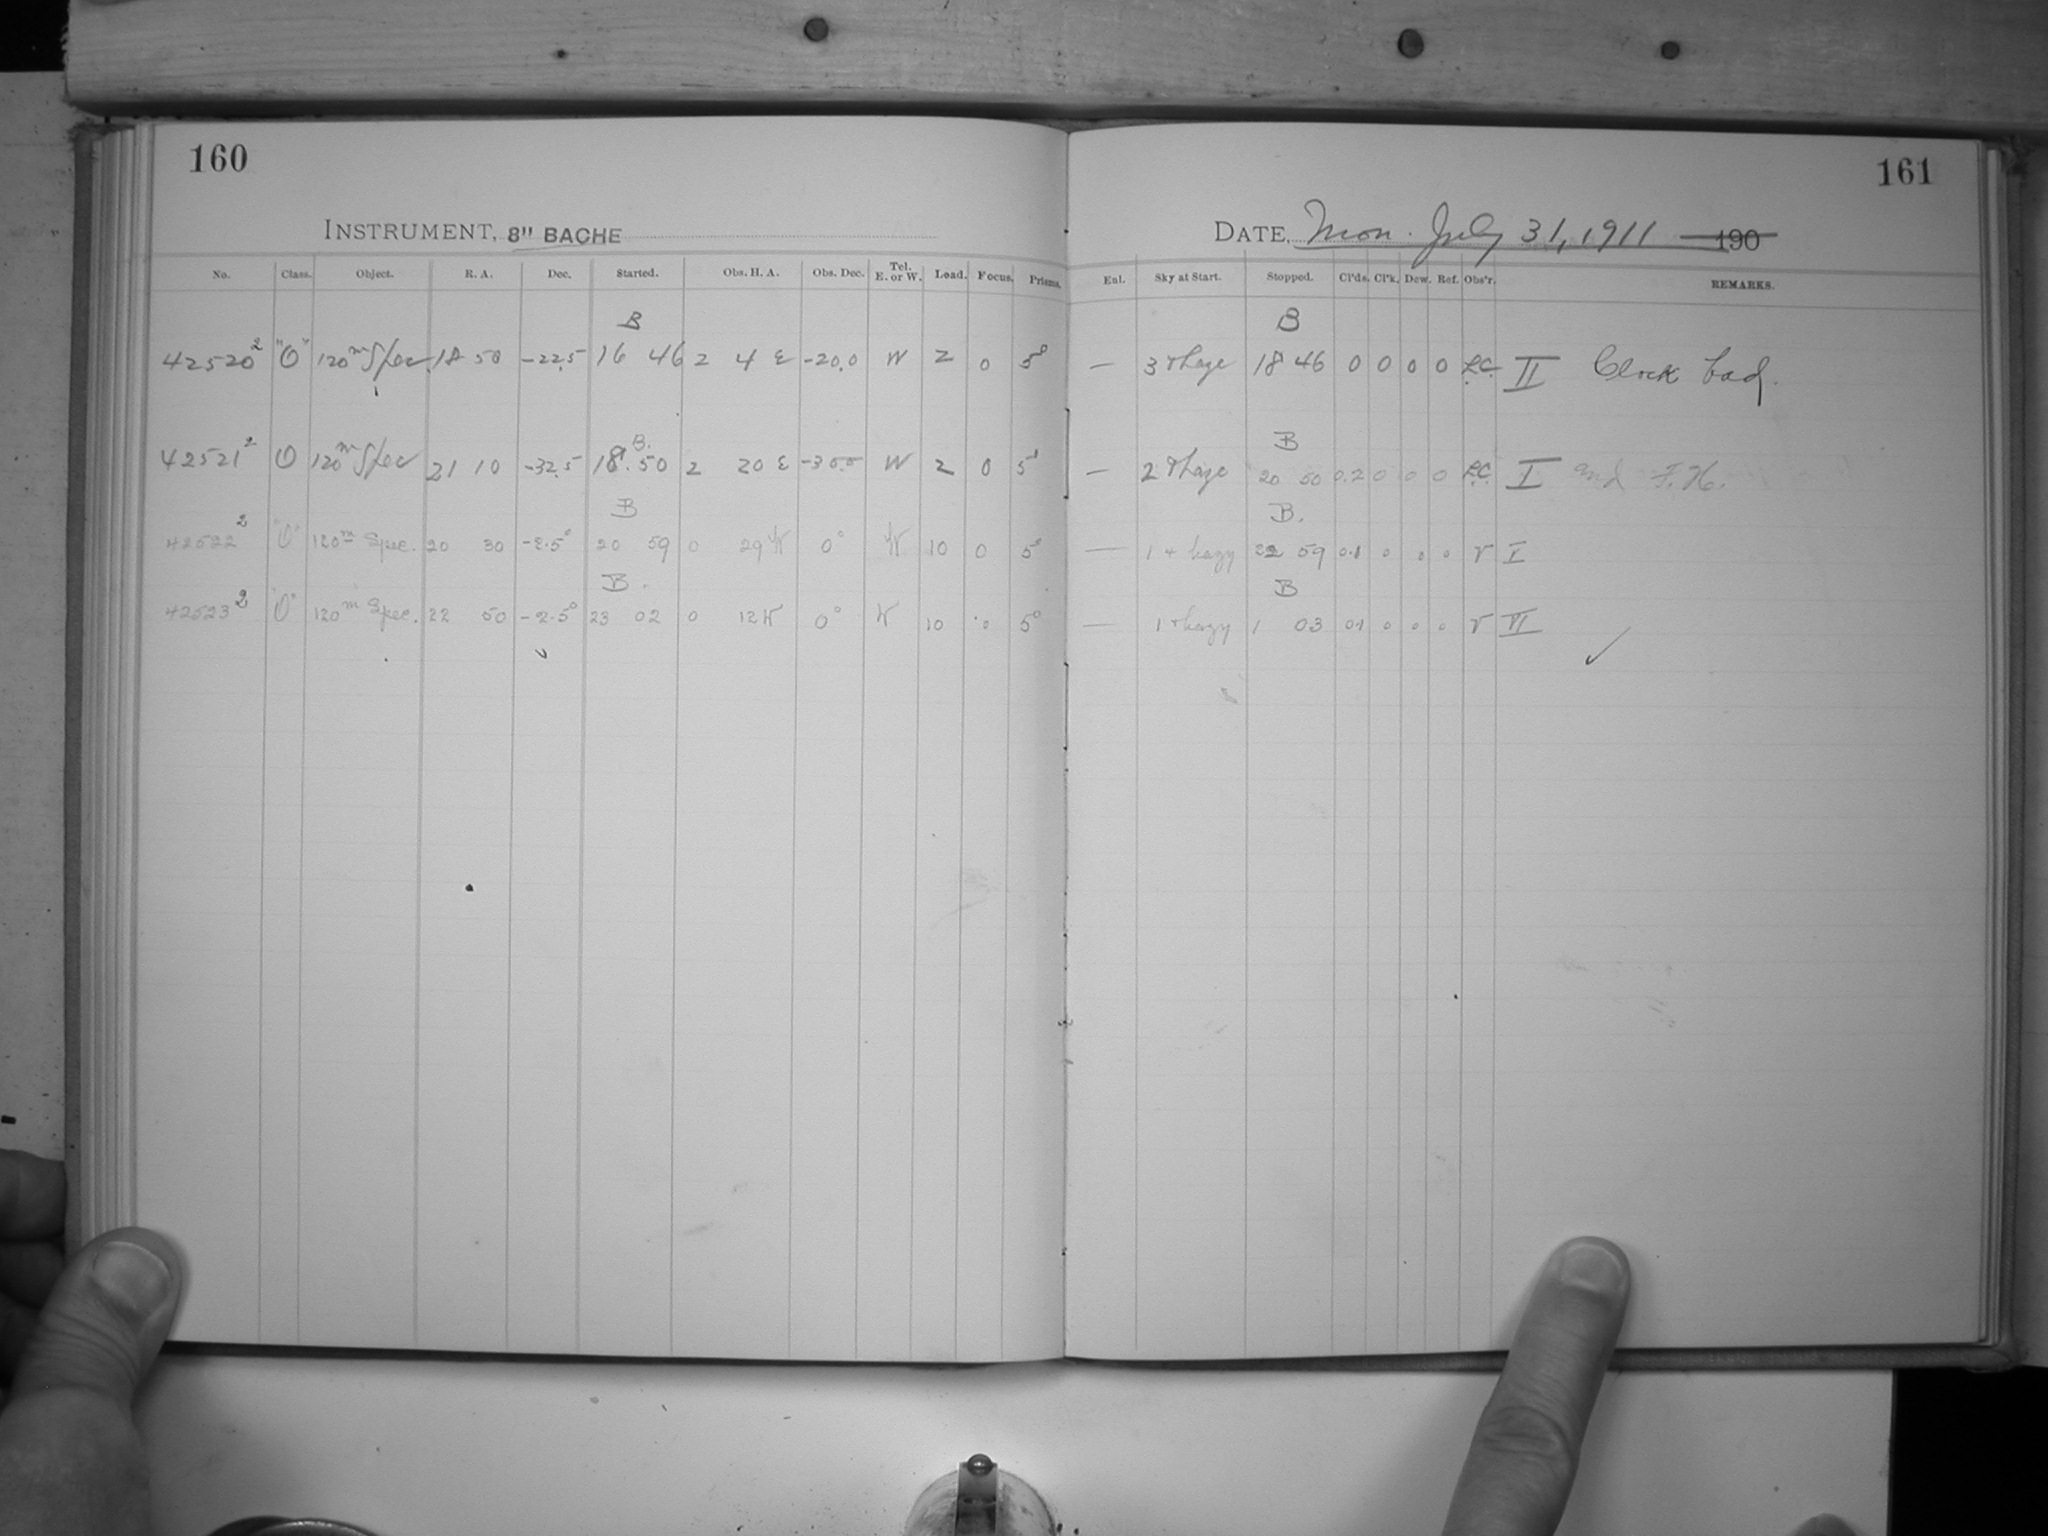 160
161
INSTRUMENT, 8" BACHE
DATE, Mon. July 31, 1911 190
No. Class. Object. R. A. Dec. Started. Obs. H. A. Obs. Dec. Tel. E. or W. Load. Focus. Prisms. Enl. Sky at Start. Stopped. Cl'ds. Cl'k. Dew. Ref. Obs'r. REMARKS.
B B
42520² "O" 120ᵐ Spec. 18 50 -22.5 16 46 2 4 E -20.0 W 2 0 5° — 3 + haze 18 46 0 0 0 0 L.C. II Clock bad.
B. B
42521² O 120ᵐ Spec 21 10 -32.5 18.50 2 20 E -30.0 W 2 0 5° — 2 + haze 20 50 0.2 0 0 0 L.C. I and F.H.
B B.
42522² "O" 120ᵐ Spec. 20 30 -2.5° 20 59 0 29 W 0° W 10 0 5° — 1 + hazy 22 59 0.1 0 0 0 V I
B. B
42523² "O" 120ᵐ Spec. 22 50 -2.5° 23 02 0 12 W 0° W 10 0 5° — 1 + hazy 1 03 01 0 0 0 V VI